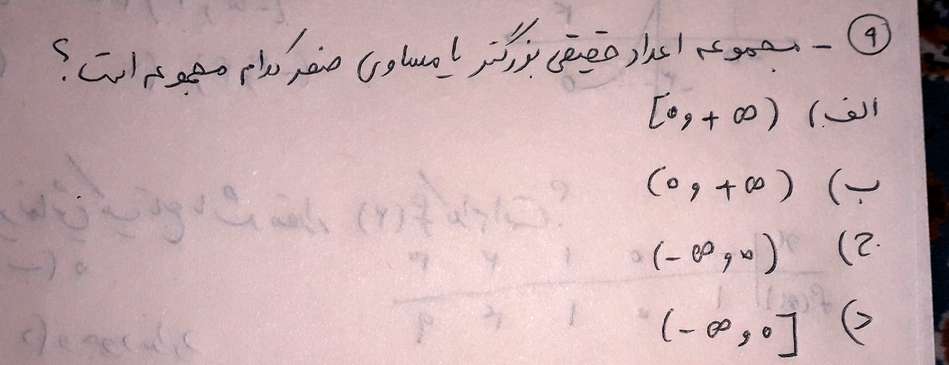 ۹ - مجموعه اعداد حقیقی بزرگتر یا مساوی صفر کدام مجموعه است؟
الف) [۰ و +∞)
ب) (۰ و +∞)
ج) (-∞ و ۰)
د) (-∞ و ۰]